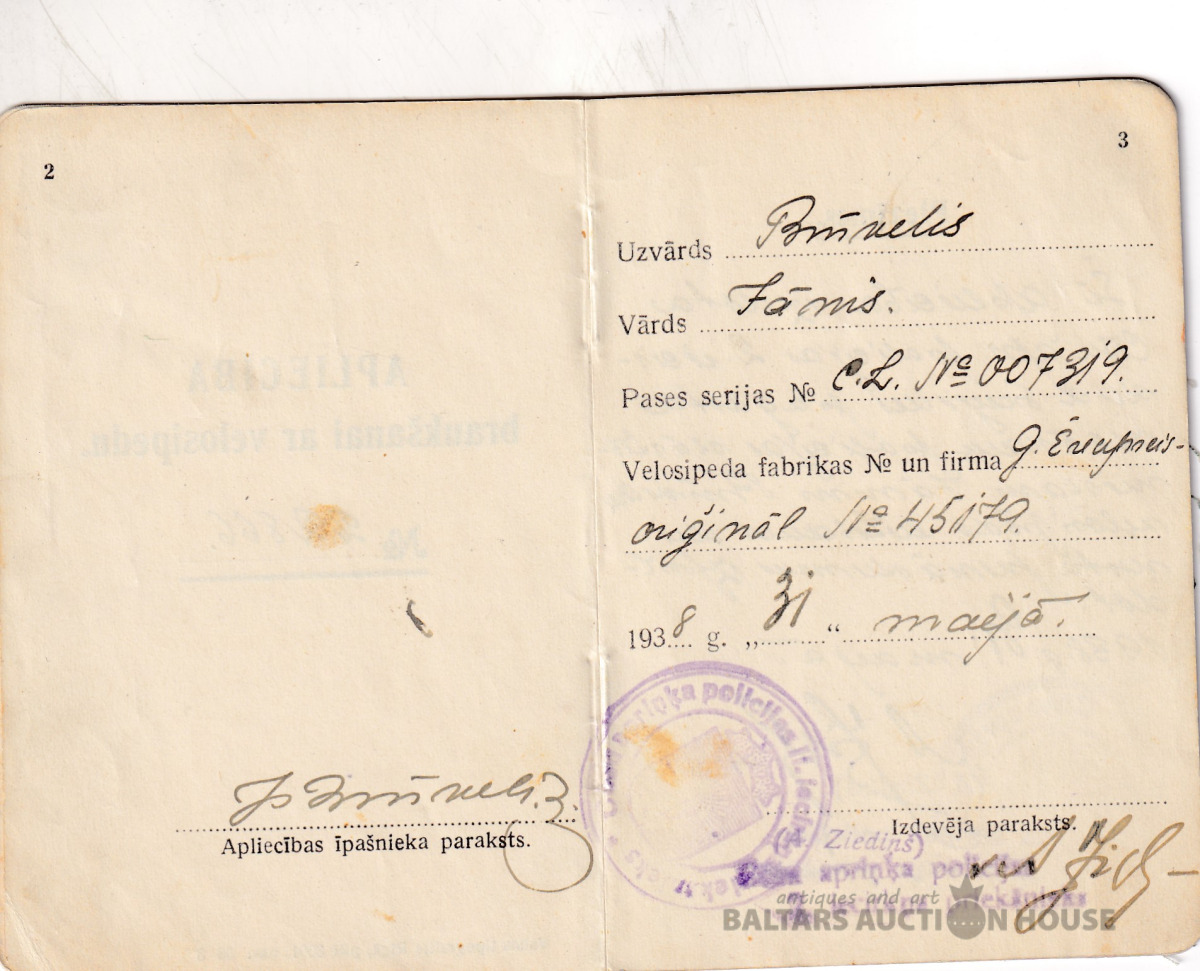 2
Apliecības īpašnieka paraksts.
3
Uzvārds Brūvelis
Vārds Jānis.
Pases serijas № C.L. № 007319.
Velosipeda fabrikas № un firma G. Erenpreis-
oriģināl № 45179.
1938 g. „31“ maijā.
apriņķa policijas II. iec
Izdevēja paraksts.
(A. Ziediņš)
apriņķa policijas
antiques and art
BALTARS AUCTION HOUSE